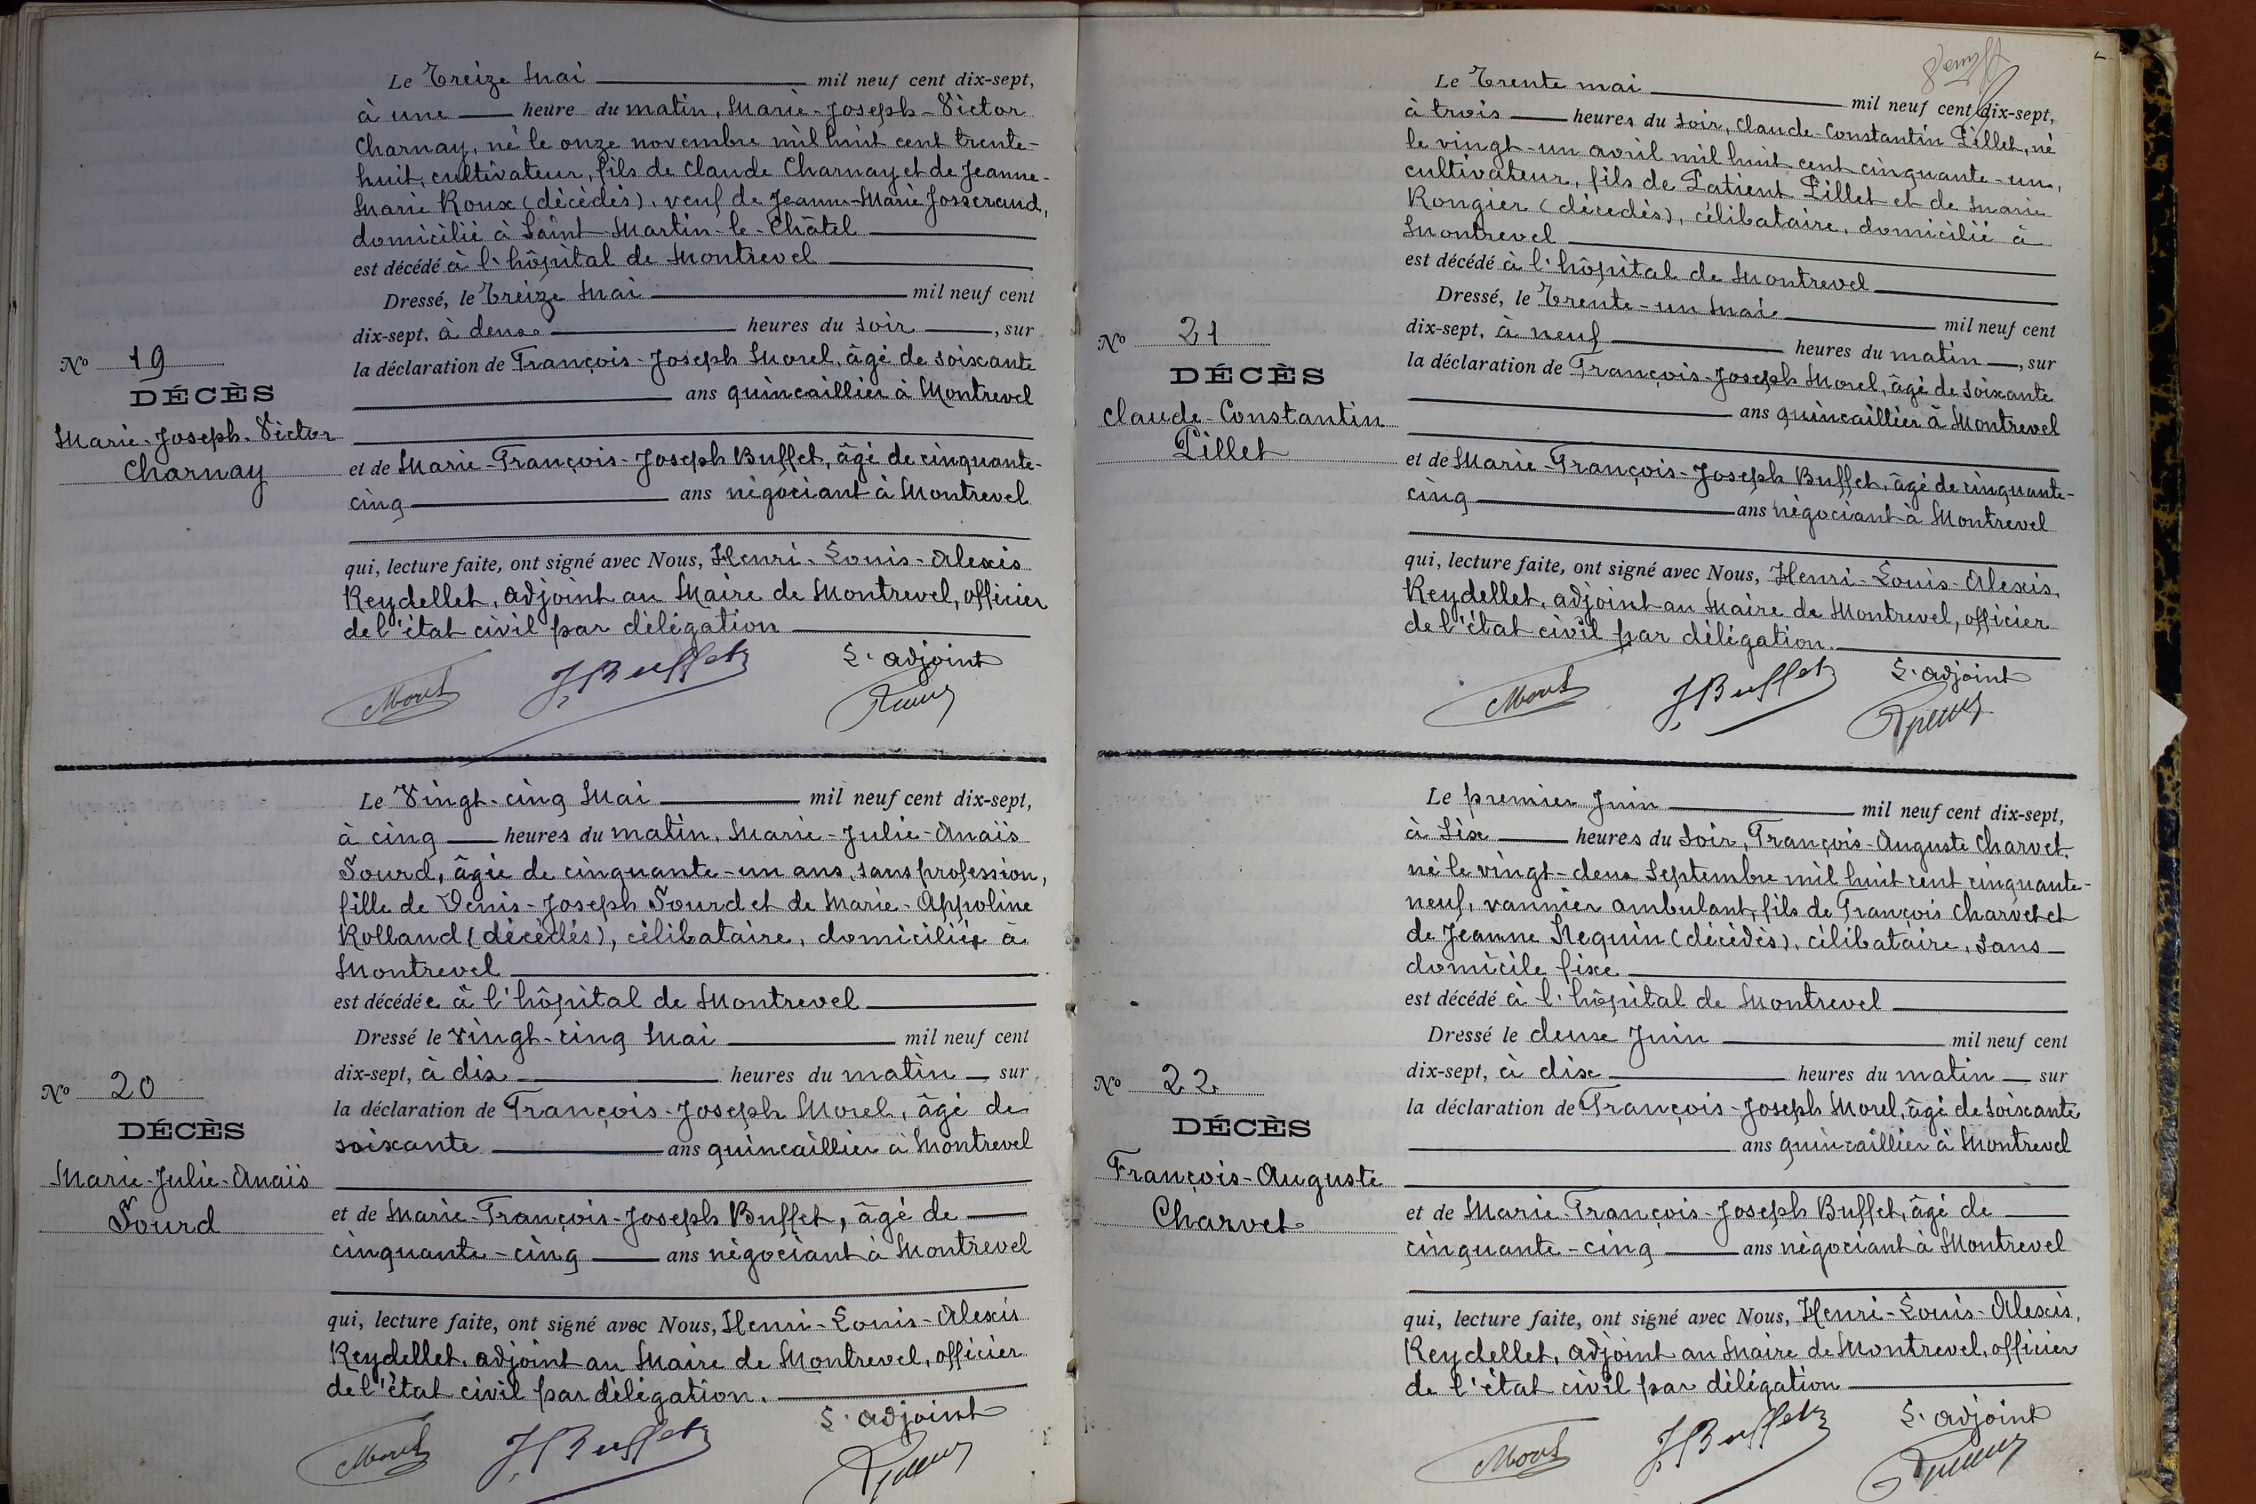 Le Treize Mai mil neuf cent dix-sept,
à une heure du matin, Marie-Joseph-Victor
Charnay, né le onze novembre mil huit cent trente-
huit, cultivateur, fils de Claude Charnay et de Jeanne-
Marie Roux (décédés), veuf de Jeanne-Marie Josserand,
domicilié à Saint-Martin-le-Châtel
est décédé à l'hôpital de Montrevel
Dressé, le Treize Mai mil neuf cent
dix-sept, à deux heures du soir, sur
la déclaration de François-Joseph Morel, âgé de soixante
ans quincaillier à Montrevel
et de Marie-François-Joseph Buffet, âgé de cinquante-
cinq ans négociant à Montrevel
qui, lecture faite, ont signé avec Nous, Henri-Louis-Alexis
Reydellet, adjoint au Maire de Montrevel, officier
de l'état civil par délégation
L'adjoint
Morel J. Buffet
N° 19
DÉCÈS
Marie-Joseph-Victor
Charnay
Le Vingt-cinq Mai mil neuf cent dix-sept,
à cinq heures du matin, Marie-Julie-Anaïs
Sourd, âgée de cinquante-un ans, sans profession,
fille de Denis-Joseph Sourd et de Marie-Appoline
Rolland (décédés), célibataire, domiciliée à
Montrevel
est décédée à l'hôpital de Montrevel
Dressé le vingt-cinq Mai mil neuf cent
dix-sept, à dix heures du matin, sur
la déclaration de François-Joseph Morel, âgé de
soixante ans quincaillier à Montrevel
et de Marie-François-Joseph Buffet, âgé de
cinquante-cinq ans négociant à Montrevel
qui, lecture faite, ont signé avec Nous, Henri-Louis-Alexis
Reydellet, adjoint au Maire de Montrevel, officier
de l'état civil par délégation.
L'adjoint
Morel J. Buffet
N° 20
DÉCÈS
Marie-Julie-Anaïs
Sourd
Le Trente mai mil neuf cent dix-sept,
à trois heures du soir, Claude-Constantin Pillet, né
le vingt-un avril mil huit cent cinquante-un,
cultivateur, fils de Patient Pillet et de Marie
Rongier (décédés), célibataire, domicilié à
Montrevel
est décédé à l'hôpital de Montrevel
Dressé, le Trente-un Mai mil neuf cent
dix-sept, à neuf heures du matin, sur
la déclaration de François-Joseph Morel, âgé de soixante
ans quincaillier à Montrevel
et de Marie-François-Joseph Buffet, âgé de cinquante-
cinq ans négociant à Montrevel
qui, lecture faite, ont signé avec Nous, Henri-Louis-Alexis
Reydellet, adjoint au Maire de Montrevel, officier
de l'état civil par délégation.
L'adjoint
Morel J. Buffet
N° 21
DÉCÈS
Claude-Constantin
Pillet
Le premier Juin mil neuf cent dix-sept,
à six heures du soir, François-Auguste Charvet,
né le vingt-deux Septembre mil huit cent cinquante-
neuf, vannier ambulant, fils de François Charvet et
de Jeanne Nequin (décédés), célibataire, sans
domicile fixe
est décédé à l'hôpital de Montrevel
Dressé le deux Juin mil neuf cent
dix-sept, à dix heures du matin sur
la déclaration de François-Joseph Morel, âgé de soixante
ans quincaillier à Montrevel
et de Marie-François-Joseph Buffet, âgé de
cinquante-cinq ans négociant à Montrevel
qui, lecture faite, ont signé avec Nous, Henri-Louis-Alexis,
Reydellet, adjoint au Maire de Montrevel, officier
de l'état civil par délégation
L'adjoint
Morel J. Buffet
N° 22
DÉCÈS
François-Auguste
Charvet